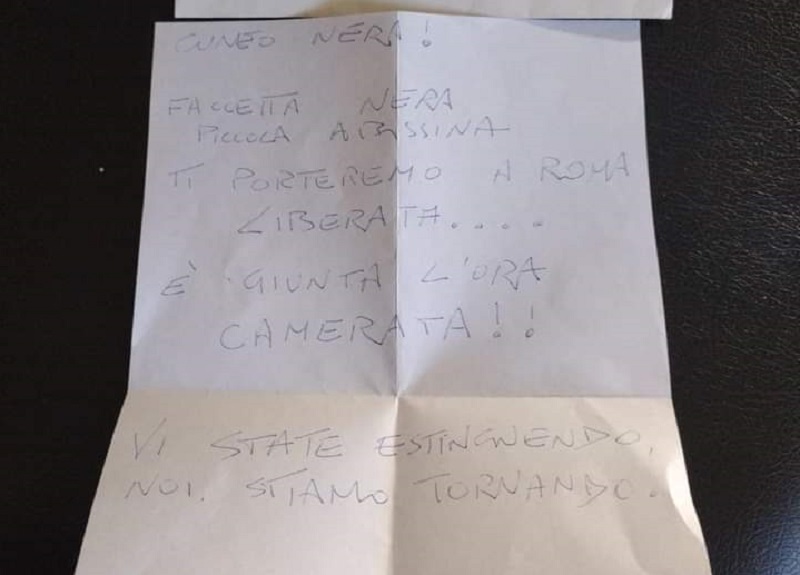 CUNEO NERA!
FACCETTA NERA
PICCOLA ABISSINA
TI PORTEREMO A ROMA
LIBERATA....
È GIUNTA L'ORA
CAMERATA!!
VI STATE ESTINGUENDO,
NOI. STIAMO TORNANDO.